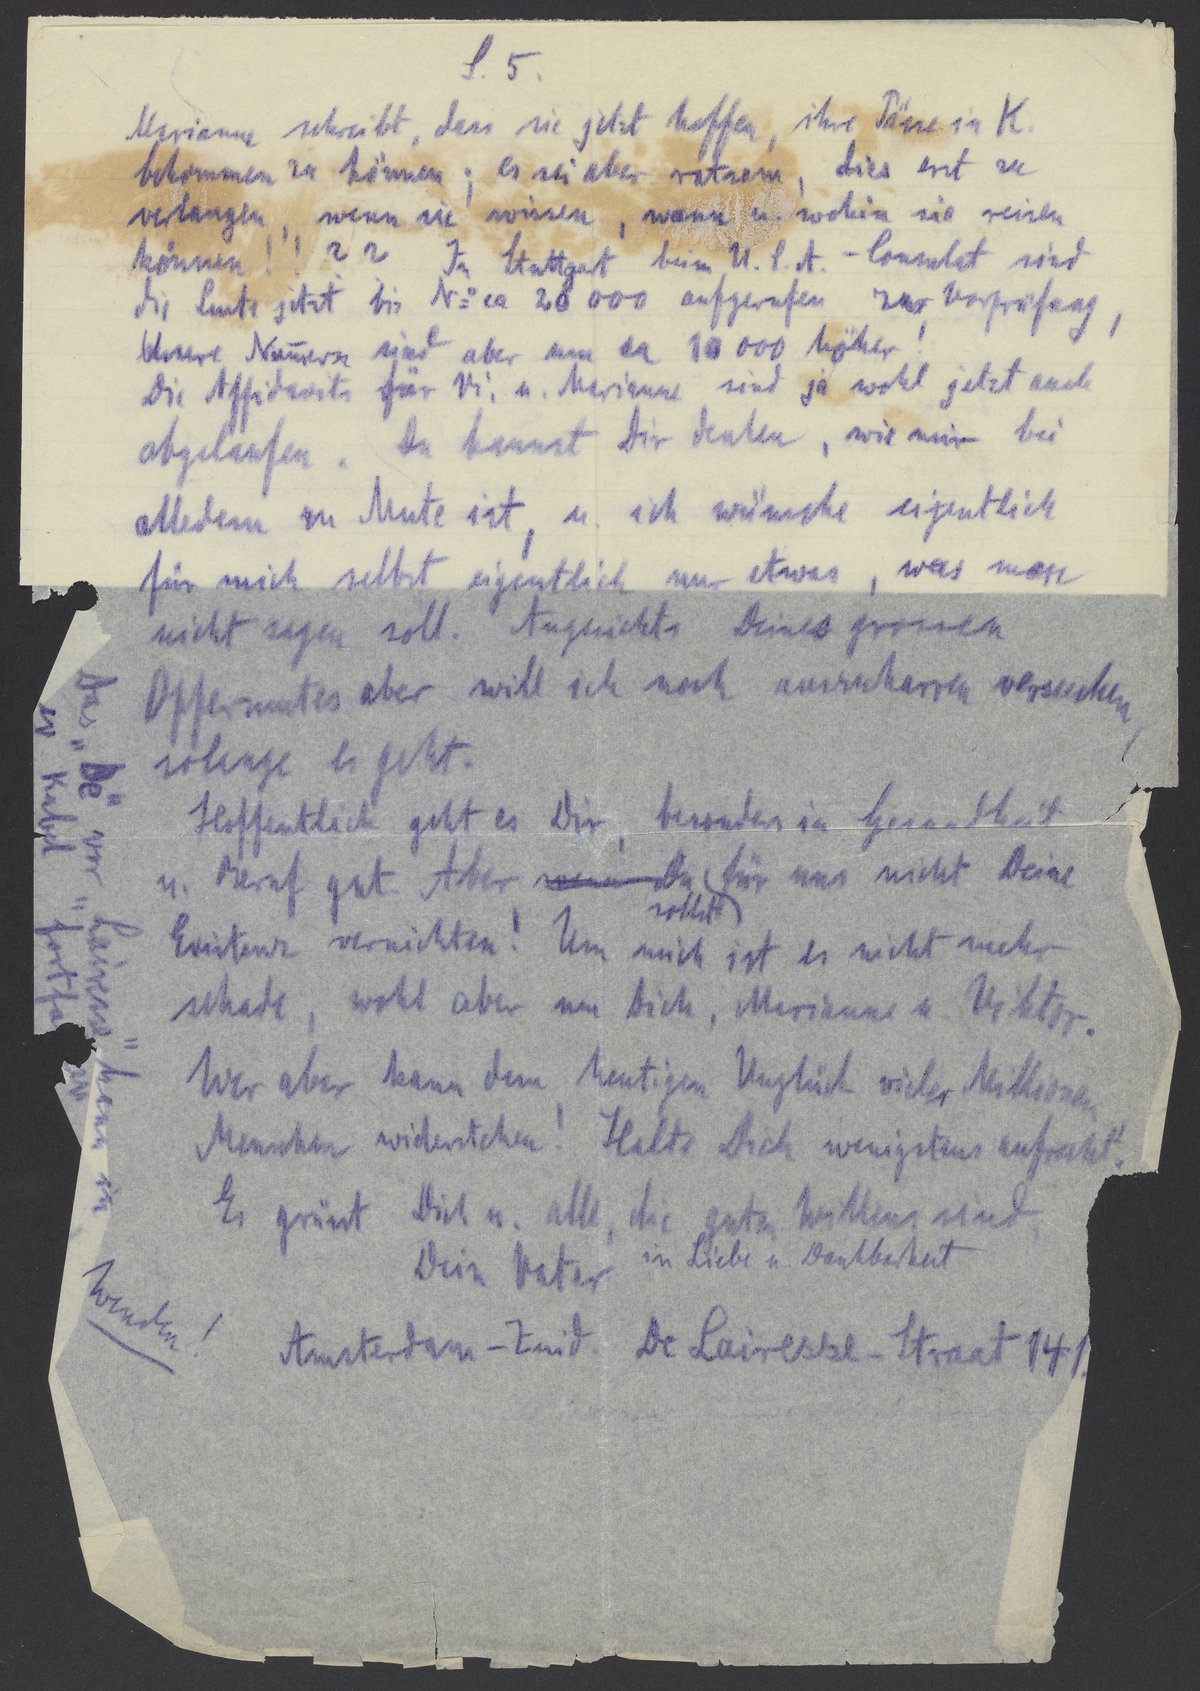 S. 5.
Marianne schreibt, dass sie jetzt hoffen, ihre Pässe in K.
bekommen zu können; es sei aber ratsam, dies erst zu
verlangen, wenn sie wissen, wann u. wohin sie reisen
können!! ? ? In Stuttgart beim U.S.A.-Consulat sind
die Leute jetzt bis No ca 20 000 aufgerufen zur Vorprüfung,
Unsere Num̄ern sind aber um ca 10 000 höher!
Die Affidavits für Vi. u. Marianne sind ja wohl jetzt auch
abgelaufen. Du kannst Dir denken, wie mir bei
alledem zu Mute ist, u. ich wünsche eigentlich
für mich selbst eigentlich nur etwas, was man
nicht sagen soll. Angesichts Deines grossen
Opfermutes aber will ich noch auszuharren versuchen,
solange es geht.
Hoffentlich geht es Dir, besonders in Gesundheit
u. Beruf gut. Aber Du für uns nicht Deine
solltest
Existenz vernichten! Um mich ist es nicht mehr
schade, wohl aber um Dich, Marianne u. Viktor.
Wer aber kann dem heutigen Unglück vieler Millionen
Menschen widerstehen! Halte Dich wenigstens aufrecht!
Es grüsst Dich u. alle, die guten Willens sind,
Dein Vater in Liebe u. Dankbarkeit
Amsterdam-Zuid. De Lairesse-Straat 141.
Das „De" vor „Lairesse" kann in
Kabel fortfa
Wenden!